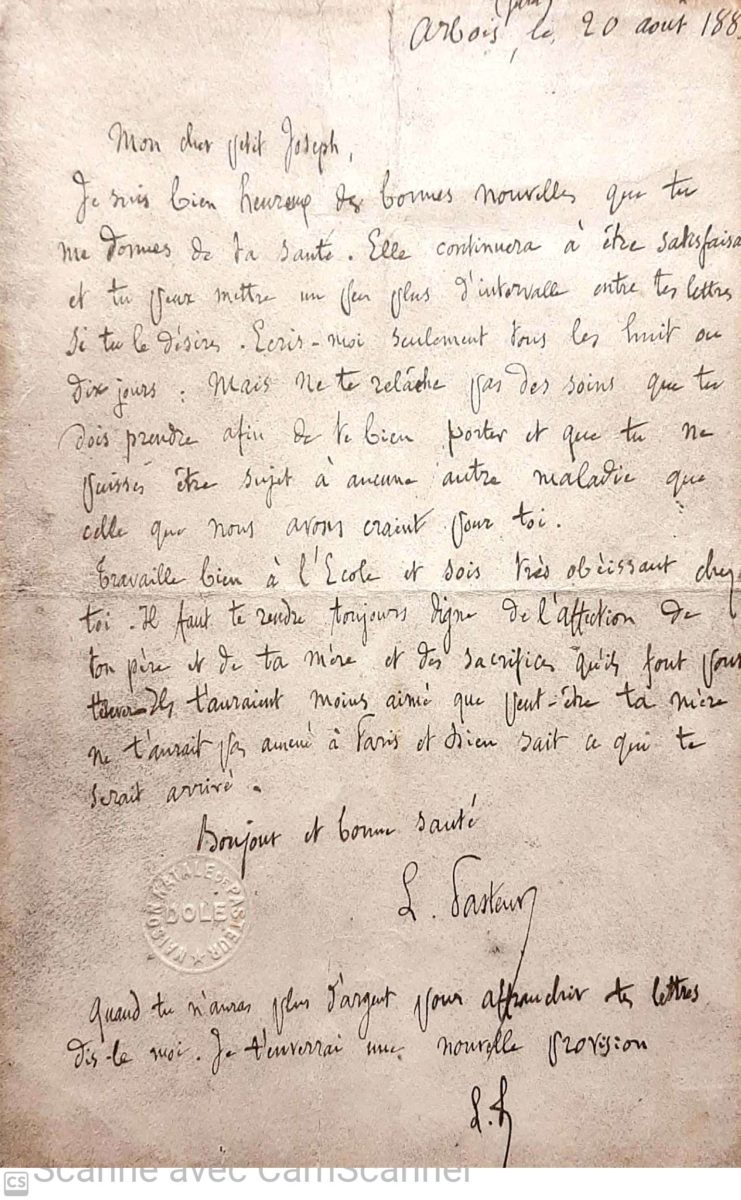 (Jura)
Arbois, le 20 août 188
Mon cher petit Joseph,
Je suis bien heureux des bonnes nouvelles que tu
me donnes de ta santé. Elle continuera à être satisfaisa
et tu peux mettre un peu plus d'intervalle entre tes lettres
si tu le désires. Ecris-moi seulement tous les huit ou
dix jours. Mais ne te relâche pas des soins que tu
dois prendre afin de te bien porter et que tu ne
puisses être sujet à aucune autre maladie que
celle que nous avons craint pour toi.
Travaille bien à l'Ecole et sois très obéissant chez
toi. Il faut te rendre toujours digne de l'affection de
ton père et de ta mère et des sacrifices qu'ils font pour
Ils t'auraient moins aimé que peut-être ta mère
ne t'aurait pas amené à Paris et Dieu sait ce qui te
serait arrivé.
Bonjour et bonne santé
L. Pasteur
MAISON NATALE DE PASTEUR
DOLE
Quand tu n'auras plus d'argent pour affranchir tes lettres
dis-le moi. Je t'enverrai une nouvelle provision
L. P.
CS Scanné avec CamScanner